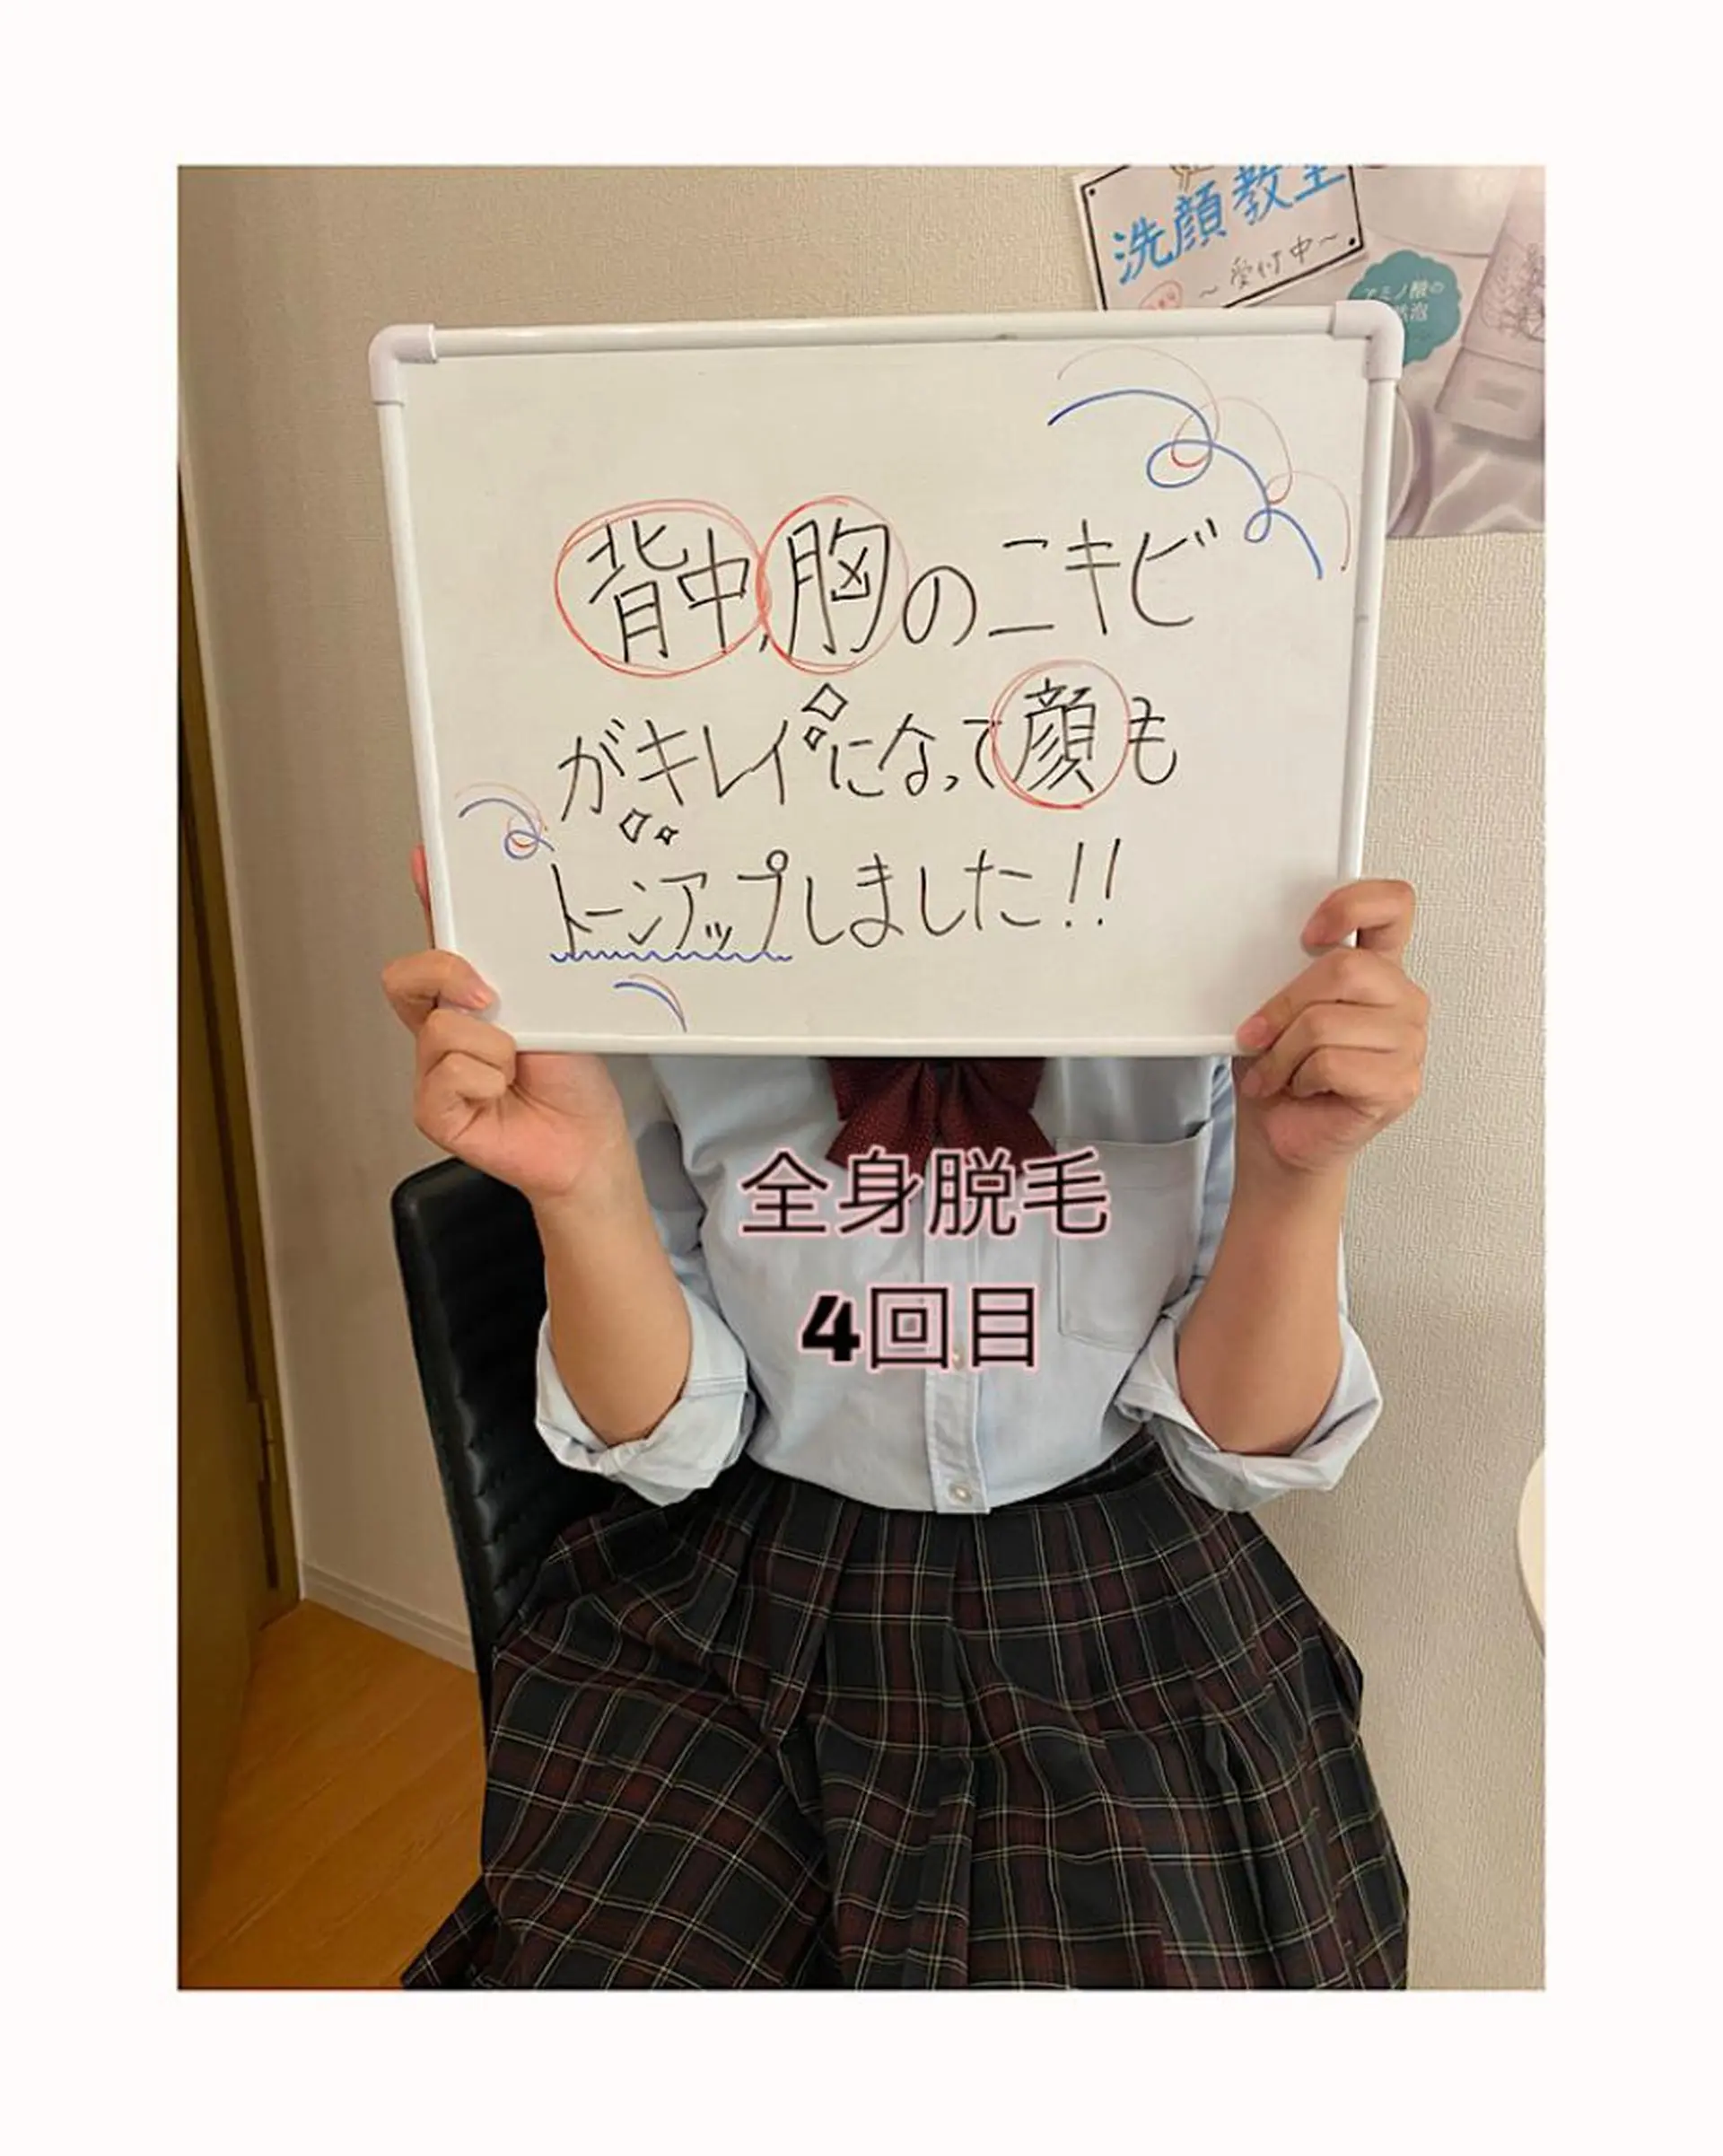 洗顔教室
〜受付中〜
アミノ酸の
背中、胸のニキビ
がキレイになって顔も
トーンアップしました!!
全身脱毛
4回目